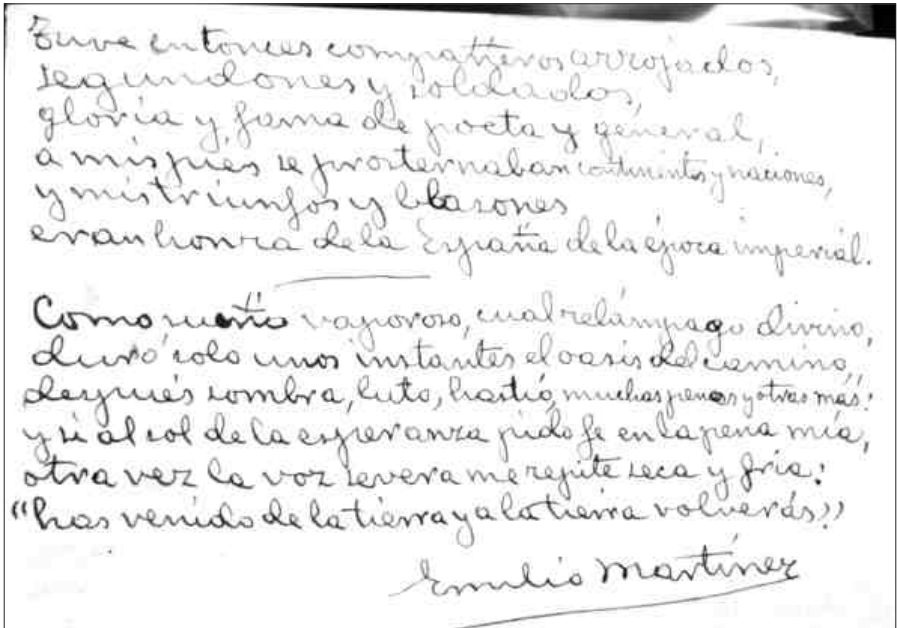 Tuve entonces compañeros arrojados,
segundones y soldados,
gloria y fama de poeta y general,
a mis pies se prosternaban continentes y naciones,
y mis triunfos y blasones
eran honra de la España de la época imperial.
Como sueño vaporoso, cual relámpago divino,
duró solo unos instantes el oasis del camino,
después sombra, luto, hastío, muchas penas y otras más:
y si al sol de la esperanza pido fe en la pena mía,
otra vez la voz severa me repite seca y fría:
"has venido de la tierra y a la tierra volverás"
Emilio Martínez